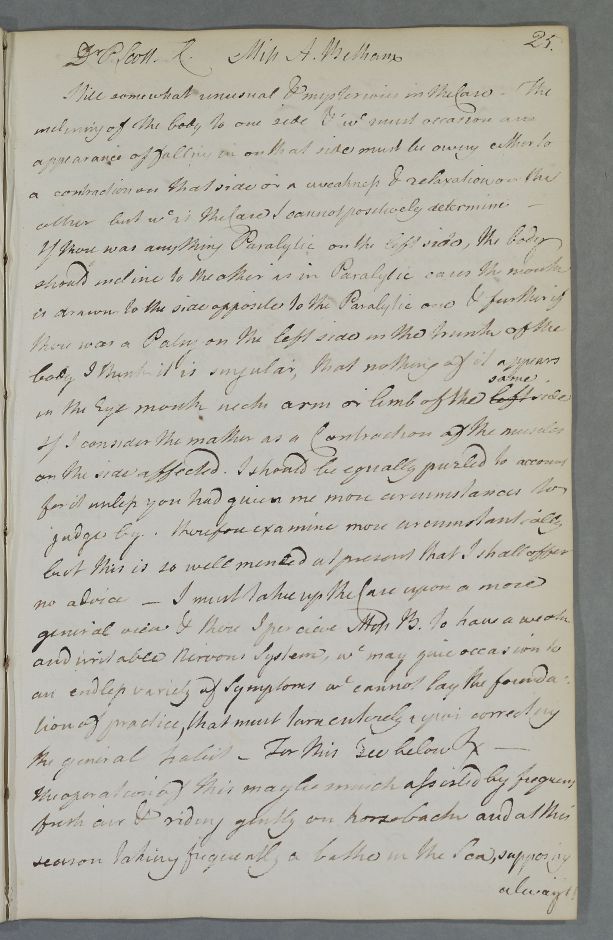 Dr. P. Scott. R. Miss A. Betham 25.
Still somewhat unusual & mysterious in the Case - The
inclining of the body to one side & wc. must occasion an
appearance of falling in on that side must be owing either to
a contraction on that side or a weakness & relaxation on the
other but wc. is the Case I cannot positively determine -
If there was any thing Paralytic on the left side, the body
should incline to the other as in Paralytic cases the mouth
is drawn to the side opposite to the Paralytic one & further if
there was a Palsy on the left side in the trunk of the
body I think it is singular, that nothing of it appears
in the Eye mouth neck arm or limb of the left same side
If I consider the matter as a Contraction of the muscles
on the side affected. I should be equally puzled to account
for it unless you had given me more circumstances to
judge by. therefore examine more circumstantially
but this is so well mended at present that I shall offer
no advice - I must take up the Case upon a more
general view & there I perceive Miss B. to have a weak
and irritable Nervous System, wc. may give occasion to
an endless variety of Symptoms wc. cannot lay the founda-
tion of practice, that must turn entirely upon correcting
the general habit - For this See below ℞ -
The operation of this may be much assisted by frequent
fresh air & riding gently on horseback and at this
season taking frequently a bathe in the Sea, supposing
always